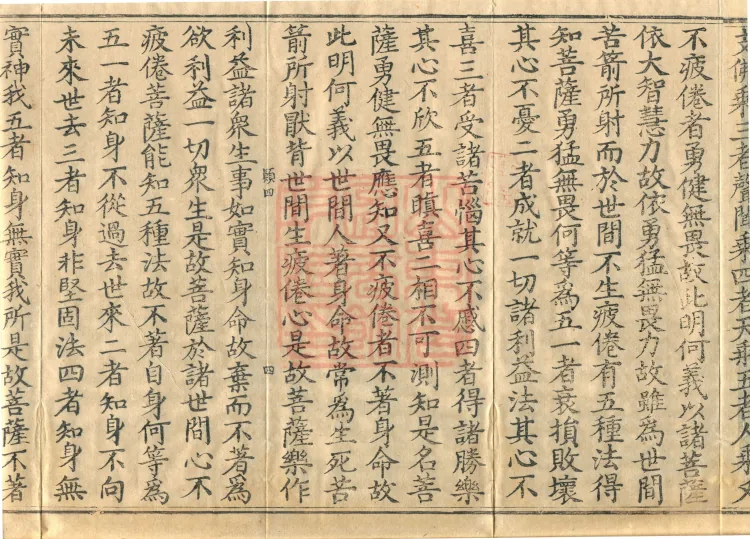 支佛乘三者聲聞乘四者天乘五者人乘又
不疲倦者勇健無畏故此明何義以諸菩薩
依大智慧力故依勇猛無畏力故雖為世間
苦箭所射而於世間不生疲倦有五種法得
知菩薩勇猛無畏何等為五一者衰損敗壞
其心不憂二者成就一切諸利益法其心不
喜三者受諸苦惱其心不慼四者得諸勝樂
其心不欣五者瞋喜二相不可測知是名菩
薩勇健無畏應知又不疲倦者不著身命故
此明何義以世間人著身命故常為生死苦
箭所射猒背世間生疲倦心是故菩薩樂作
四 四
利益諸衆生事如實知身命故棄而不著為
欲利益一切衆生是故菩薩於諸世間心不
疲倦菩薩能知五種法故不著自身何等為
五一者知身不從過去世來二者知身不向
未來世去三者知身非堅固法四者知身無
實神我五者知身無實我所是故菩薩不著